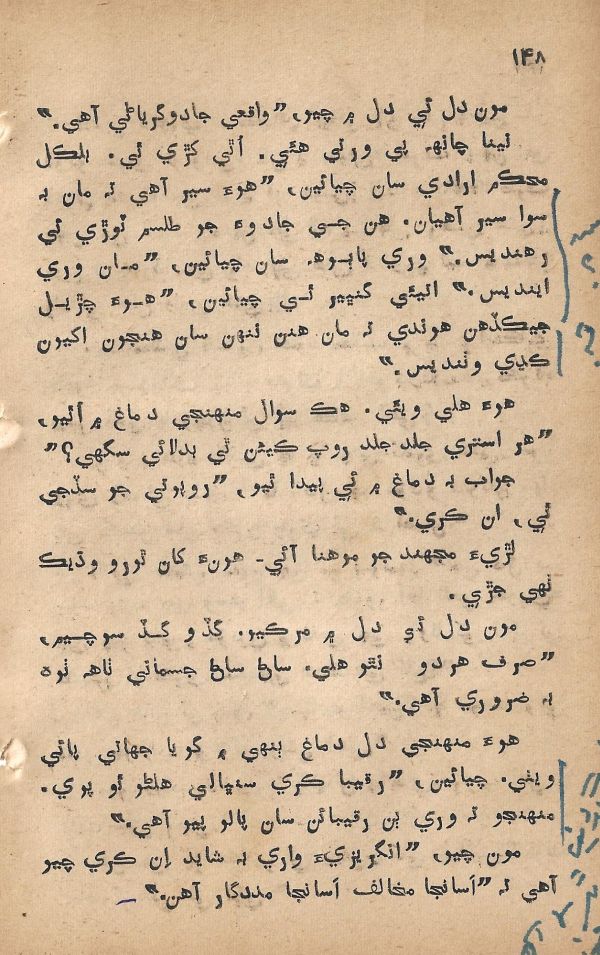 ۱۴۸
مون دل ئي دل ۾ چيو، ”واقعي جادوگرياڻي آهي.“
نينا چانهہ پي ورتي هئي. اُٿي کڙي ٿي. بلڪل
محڪم ارادي سان چيائين، ”هوءَ سير آهي تہ مان بہ
سوا سير آهيان. هن جي جادوءَ جو طلسم ٽوڙي ئي
رهنديس.“ وري پاٻوهہ سان چيائين، ”مان وري
اينديس.“ ائيئي گنڀير ٿي چيائين، ”هوءَ چڙيل
جيڪڏهن هوندي تہ مان هنن ننهن سان هنجون اکيون
ڪڍي وٺنديس.“
هوءَ هلي ويئي. هڪ سوال منهنجي دماغ ۾ آئيو،
”هر استري جلد جلد روپ ڪيئن ٿي بدلائي سگهي؟“
جواب بہ دماغ ۾ ئي پيدا ٿيو، ”روپوتي جو سڏجي
ٿي، ان ڪري.“
لڙيءَ مجهند جو موهنا آئي۔ هونءَ کان ٿورو وڌيڪ
ٺهي جڙي.
مون دل ئي دل ۾ مرڪيو. گڏو گڏ سوچيم،
”صرف هردو نٿو هلي. ساڻ ساڻ جسماني ٺاهہ ٺوہ
بہ ضروري آهي.“
هوءَ منهنجي دل دماغ ٻنهي ۾ گويا جهاتي پائي
ويئي. چيائين، ”رقيبا ڪري سنڀالي هلڻو ئو پوي.
منهنجو تہ وري ٻن رقيبائن سان پالو پيو آهي.“
مون چيو، ”انگريزيءَ واري بہ شايد اِن ڪري چيو
آهي تہ ”اَسانجا مخالف اَسانجا مددگار آهن.“